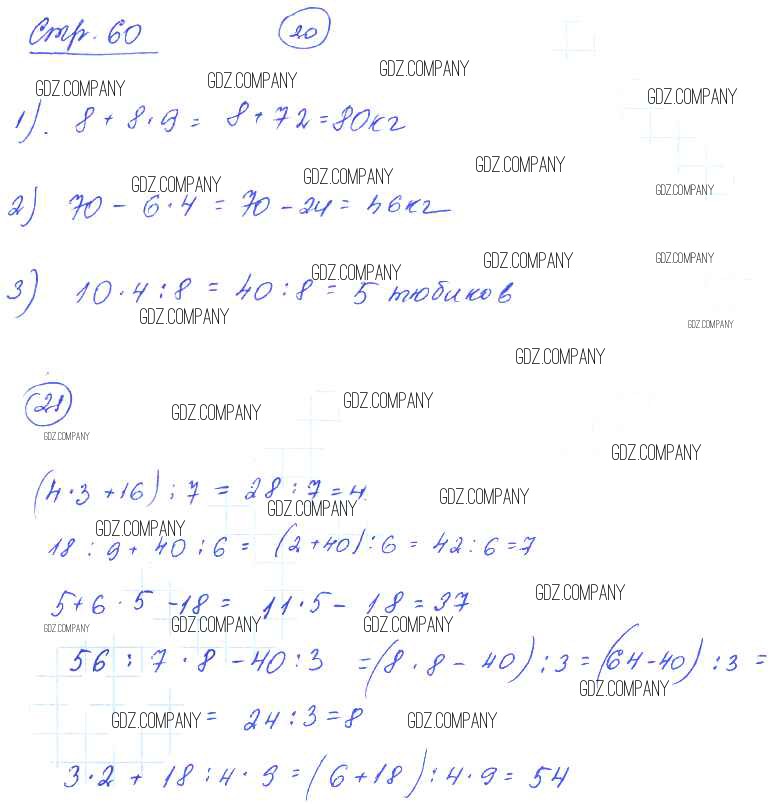 Стр. 60 20
GDZ.COMPANY GDZ.COMPANY GDZ.COMPANY GDZ.COMPANY
1). 8 + 8 · 9 = 8 + 72 = 80 кг
GDZ.COMPANY GDZ.COMPANY GDZ.COMPANY GDZ.COMPANY
2) 70 - 6 · 4 = 70 - 24 = 46 кг
GDZ.COMPANY GDZ.COMPANY GDZ.COMPANY
3) 10 · 4 : 8 = 40 : 8 = 5 тюбиков
GDZ.COMPANY GDZ.COMPANY
GDZ.COMPANY
21
GDZ.COMPANY GDZ.COMPANY
GDZ.COMPANY GDZ.COMPANY
(4 · 3 + 16) : 7 = 28 : 7 = 4.
GDZ.COMPANY GDZ.COMPANY GDZ.COMPANY
18 : 9 + 40 : 6 = (2 + 40) : 6 = 42 : 6 = 7
GDZ.COMPANY
5 + 6 · 5 - 18 = 11 · 5 - 18 = 37
GDZ.COMPANY GDZ.COMPANY GDZ.COMPANY
56 : 7 · 8 - 40 : 3 = (8 · 8 - 40) : 3 = (64 - 40) : 3 =
GDZ.COMPANY
= 24 : 3 = 8
GDZ.COMPANY GDZ.COMPANY
3 · 2 + 18 : 4 · 9 = (6 + 18) : 4 · 9 = 54